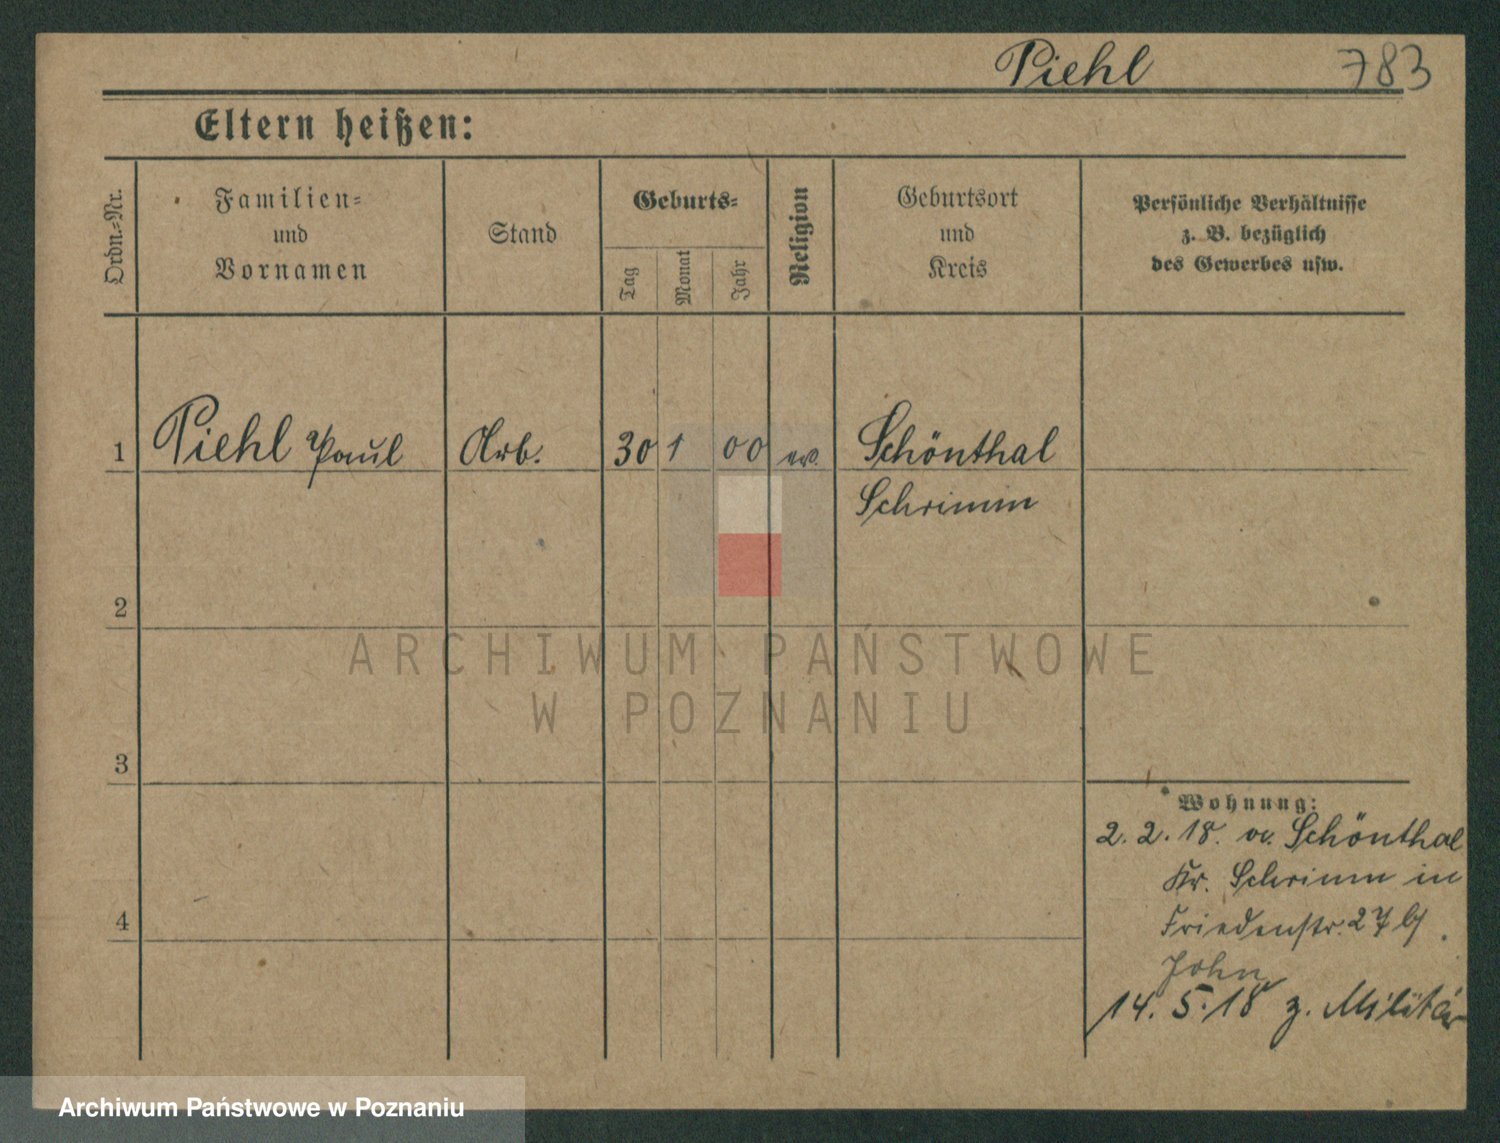 Piehl 783
Eltern heißen:
Ordn.-Nr.
Familien-
und
Vornamen
Stand
Geburts-
Tag
Monat
Jahr
Religion
Geburtsort
und
Kreis
Persönliche Verhältnisse
z. B. bezüglich
des Gewerbes usw.
1 Piehl Paul Arb. 30 1 00 ev. Schönthal
Schrimm
2
ARCHIWUM PAŃSTWOWE
W POZNANIU
3
Wohnung:
2. 2. 18. v. Schönthal
Kr. Schrimm in
4
Friedenstr. 27 b/
John
14. 5. 18 z. Militär
Archiwum Państwowe w Poznaniu